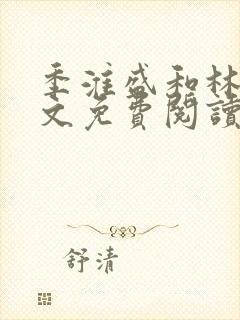 季淮盛和林
文免費閱讀
舒清